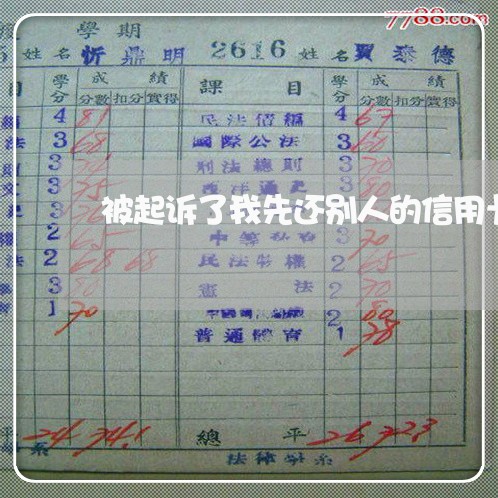 7788.com
學期
5 姓名 忻鼎明 2616 姓名 賈泰德
目 學分 成績 課目 學分 成績
分數 扣分 實得 分數 扣分 實得
4 81 民法債編 4 67
法 3 68 國際公法 3 60
3 刑法總則 3 70
文 3 75 西洋通史 3 80
被起诉了我先还别人的信用卡
2 65 3 70
法 2 68 68 民法物權 2 65
3 80 憲法 2 70
育 1 70 2 80
普通體育 1 78
平 24 74.1 總平 26 72.3
系 法律學系